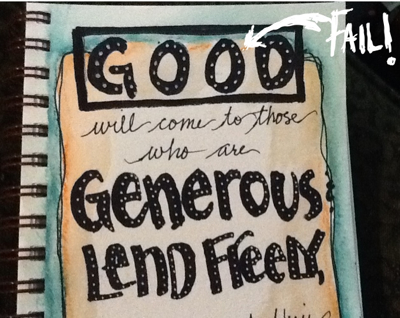 FAIL!
GOOD
will come to those
who are
GENEROUS
LEND FREELY,